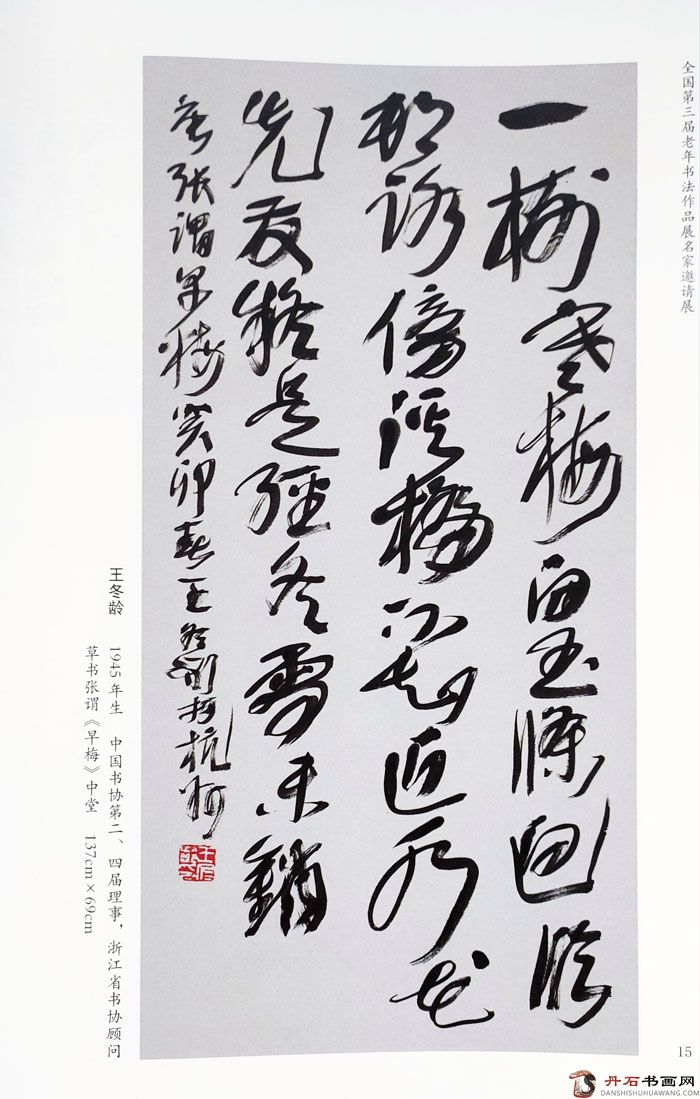 全国第三届老年书法作品展名家邀请展
一樹寒梅白玉條迥臨
村路傍溪橋不知近水花
先發疑是經冬雪未銷
唐張謂早梅癸卯春王冬齡於杭州
王冬龄 1945年生 中国书协第二、四届理事，浙江省书协顾问
草书张谓《早梅》中堂 137cm×69cm
15
丹石书画网
DANSHISHUHUAWANG.COM